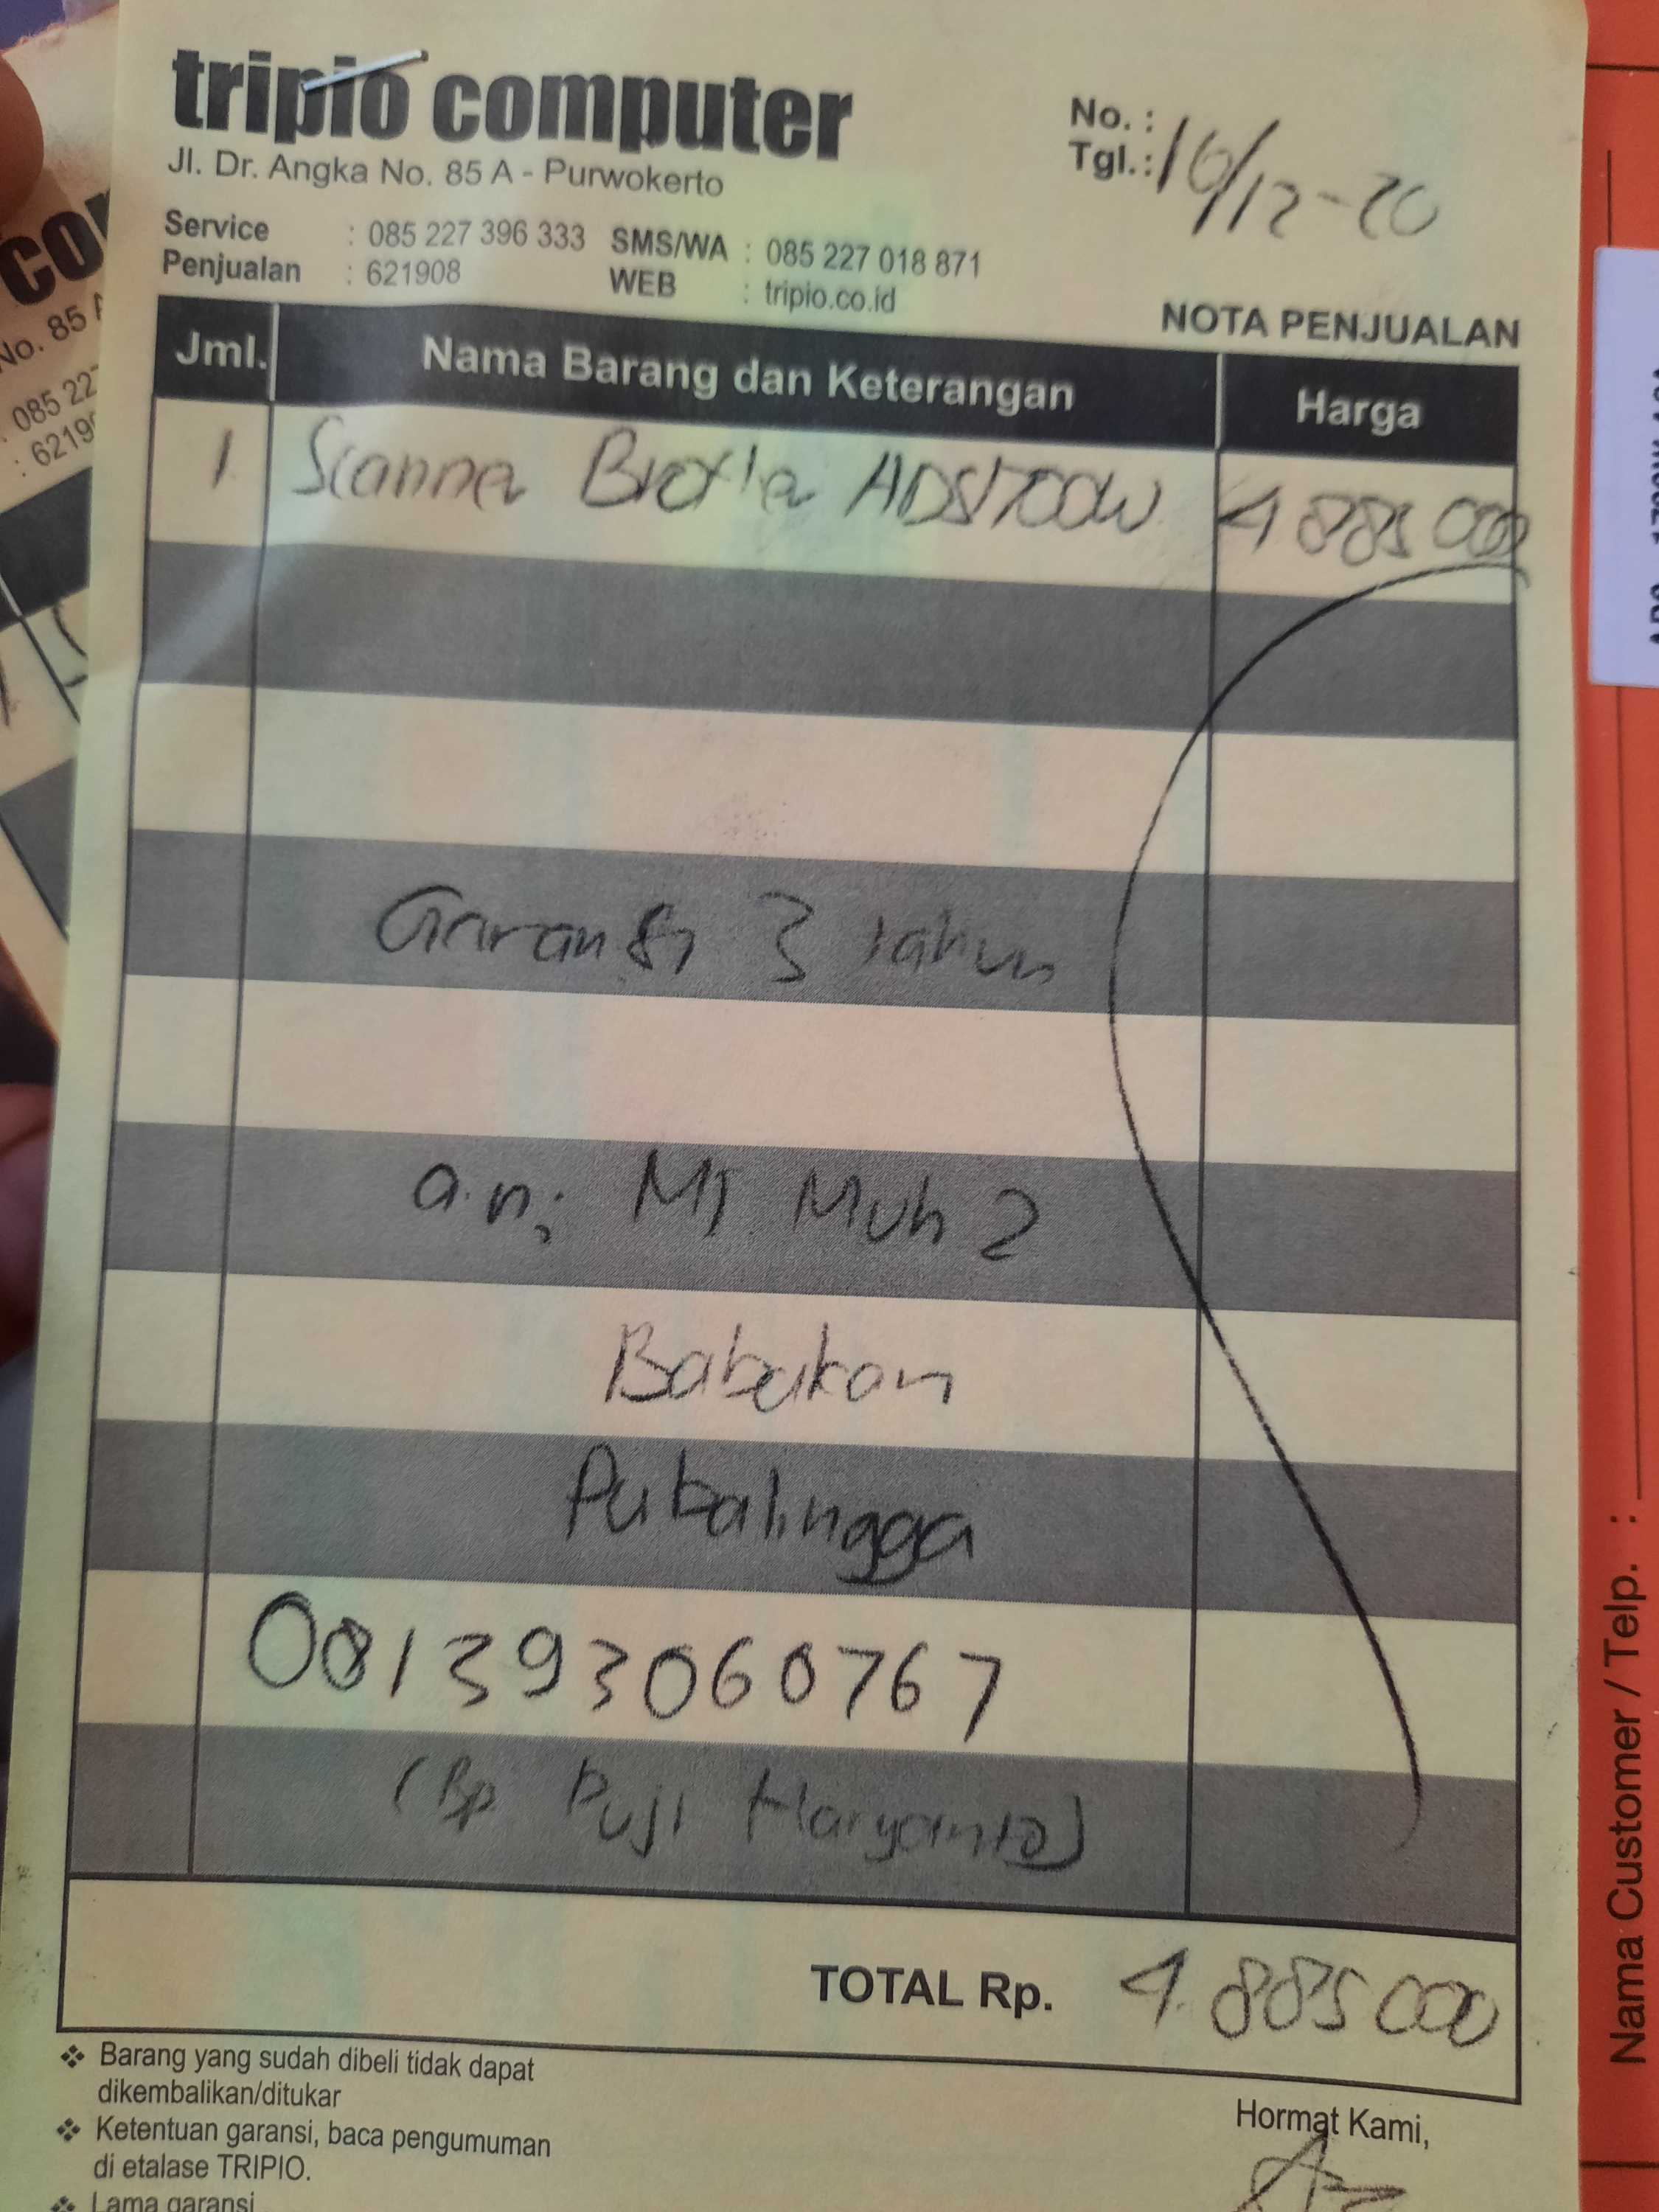 tripio computer
Jl. Dr. Angka No. 85 A - Purwokerto
No. :
Tgl. : 16/12-20
Service : 085 227 396 333 SMS/WA : 085 227 018 871
Penjualan : 621908 WEB : tripio.co.id
NOTA PENJUALAN
Jml. Nama Barang dan Keterangan Harga
1 Scanner Brother ADS1700W 4 885 000
Garansi 3 tahun
a.n; MI Muh 2
Babakan
Pubalingga
081393060767
(Bp Puji Haryanto)
TOTAL Rp. 4.885 000
❖ Barang yang sudah dibeli tidak dapat
dikembalikan/ditukar
❖ Ketentuan garansi, baca pengumuman
di etalase TRIPIO.
❖ Lama garansi
Hormat Kami,
Nama Customer / Telp. :
No. 85 A
: 085 227